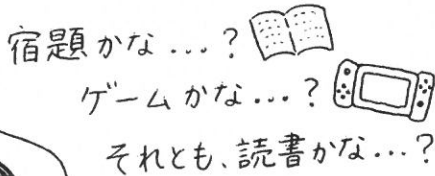 宿題かな…?
ゲームかな…?
それとも、読書かな…?